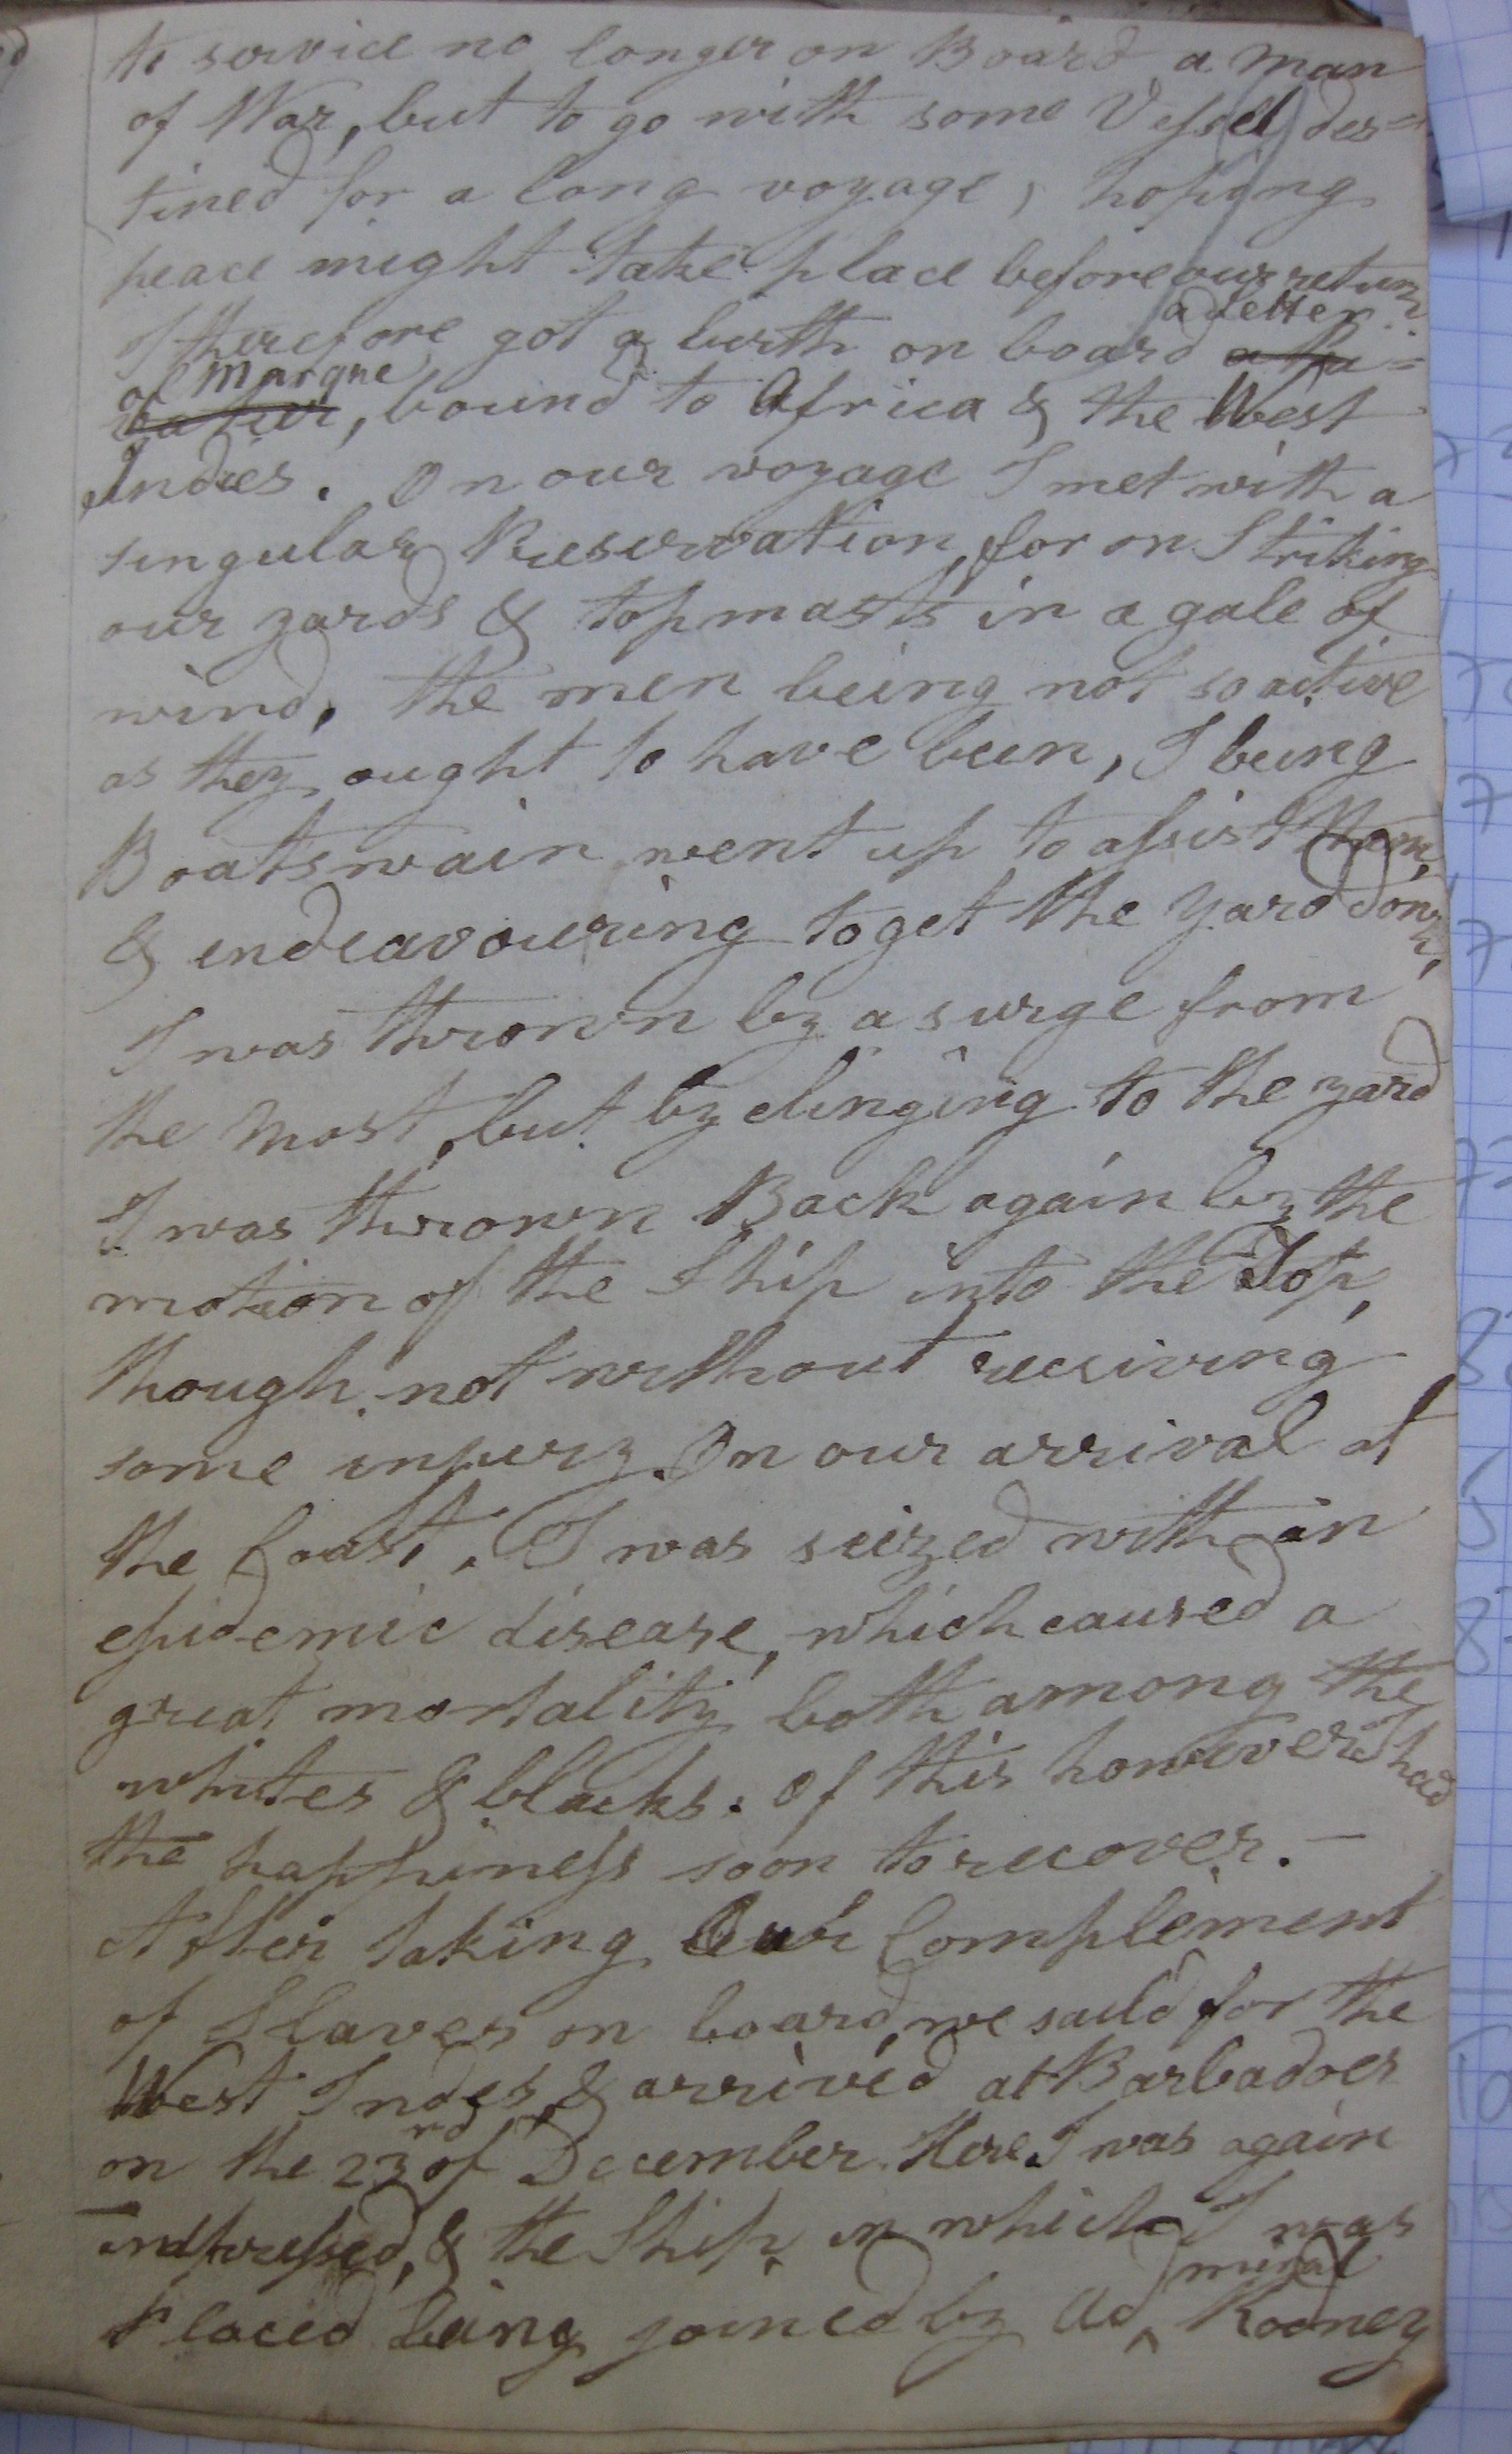 to service no longer on Board a man
of War, but to go with some Vessel des=
tined for a long voyage, hoping
peace might take place before our return.
I therefore got a birth on board a Letter
of Marque, bound to Africa & the West
Indies. On our voyage I met with a
singular Preservation, for on Striking
our yards & topmasts in a gale of
wind, the men being not so active
as they ought to have been, I being
Boatswain went up to assist them,
& endeavouring to get the yard down,
I was thrown by a surge from
the Mast, but by clinging to the yard
I was thrown Back again by the
motion of the Ship into the Top,
though not without receiving
some injury. On our arrival at
the Coast, I was seized with an
epidemic disease, which caused a
great mortality both among the
whites & blacks. Of this however I had
the happiness soon to recover. —
After taking Our Complement
of Slaves on board, we sail'd for the
West Indes, & arrived at Barbadoes
on the 23rd of December. Here I was again
impressed, & the Ship in which I was
Placed being joined by Admiral Rodney